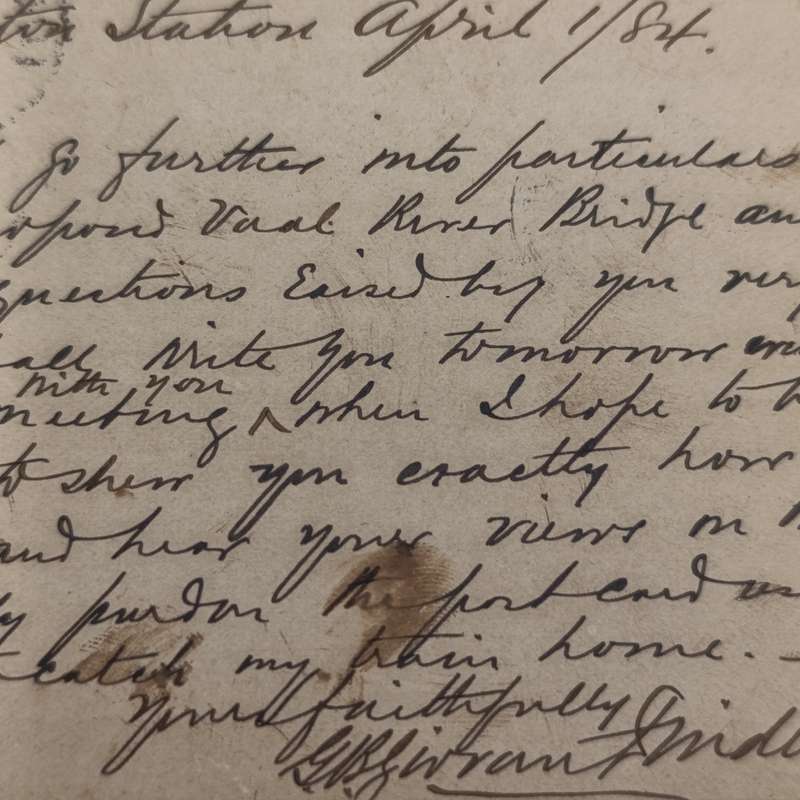 ton Station April 1/84.
go further into particulars
opposed Vaal River Bridge an
questions Raised by you very
all Write you tomorrow
with you
meeting ^ when I hope to b
to shew you exactly how
and hear your views on
ly pardon the post card as
catch my train home. –
Yours faithfully